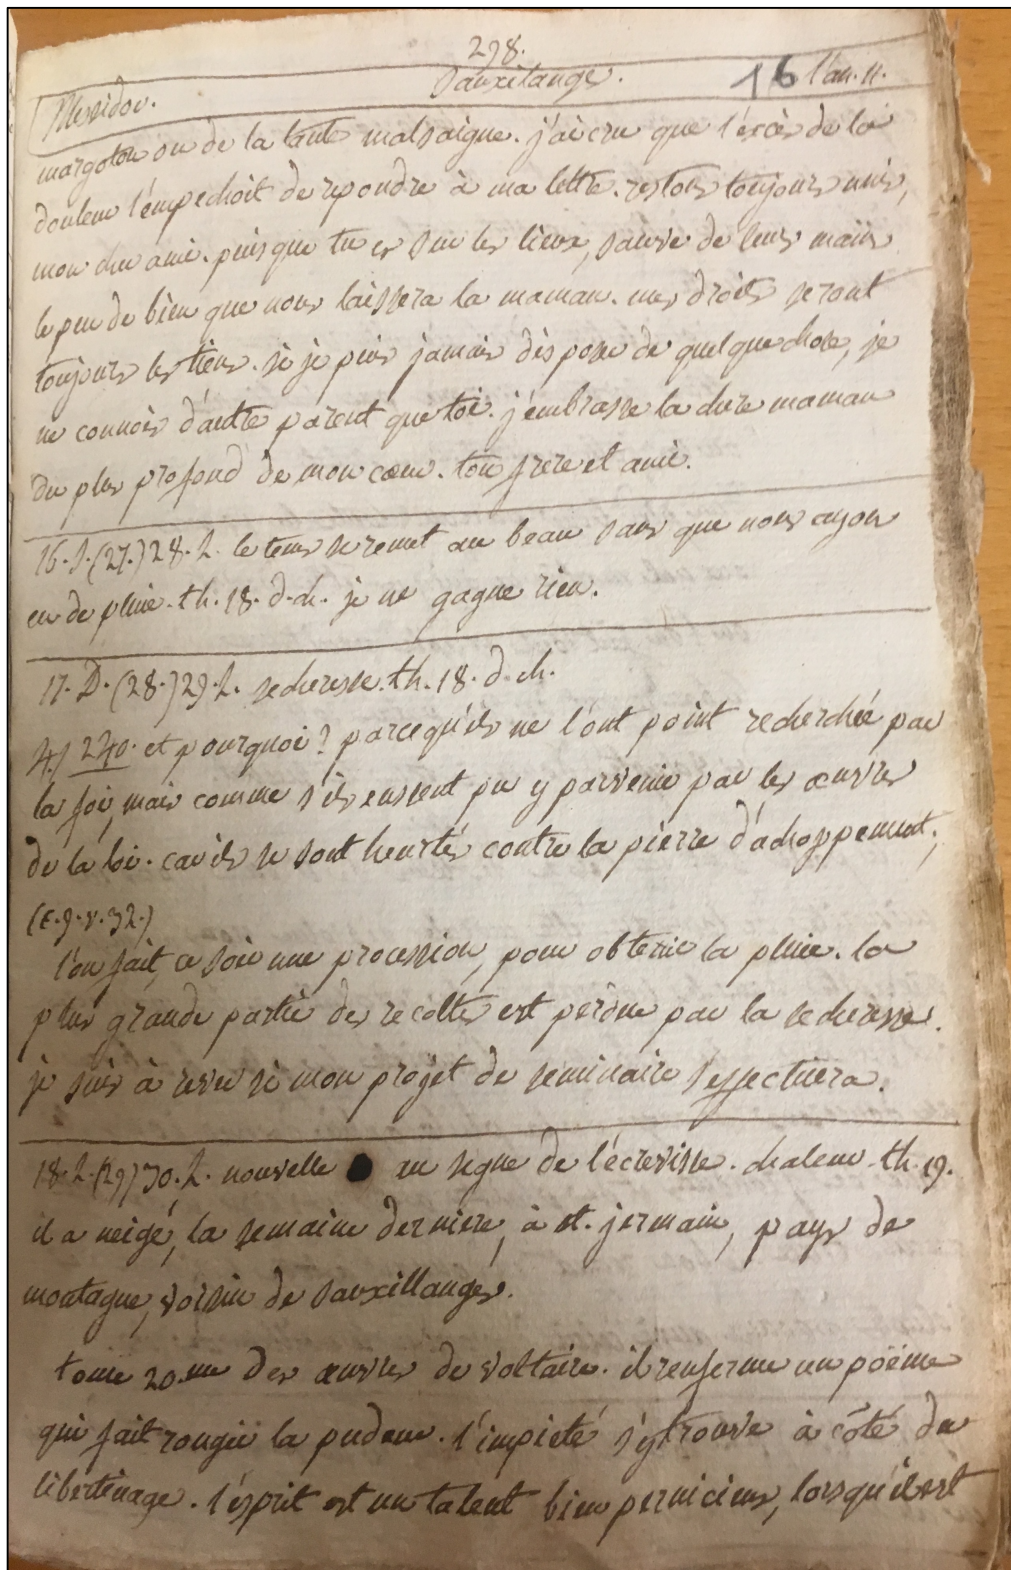 298.
Messidor. Sauxilanges. 16 l'an. 11.
margoton ou de la tante malsaigne. j'ai cru que l'excès de la
douleur l'empechoit de repondre à ma lettre. restons toujours unis,
mon cher ami. puisque tu es sur les lieux, sauve de leurs mains
le peu de bien que nous laissera la maman. mes droits seront
toujours les tiens. si je puis jamais disposer de quelque chose, je
ne connois d'autre parent que toi. j'embrasse la chere maman
du plus profond de mon cœur. ton frere et ami.
16. S. (27.) 28. L. le tems se remet au beau sans que nous ayons
eu de pluie. th. 18. d. ch. je ne gagne rien.
17. D. (28.) 29. L. secheresse. th. 18. d. ch.
4.) 240. et pourquoi? parcequ'ils ne l'ont point recherchée par
la foi, mais comme s'ils eussent pu y parvenir par les œuvres
de la loi. car ils se sont heurtés contre la pierre d'achoppement,
(E. 9. v. 32.)
l'on fait, ce soir une procession, pour obtenir la pluie. la
plus grande partie des recoltes est perdue par la secheresse.
je suis à rever si mon projet de seminaire s'effectuera.
18. L. (29) 30. L. nouvelle ● au signe de l'écrevisse. chaleur. th. 19.
il a neigé, la semaine derniere, à st. jermain, pays de
montagne, voisin de sauxillanges.
tome 20.me des œuvres de voltaire. il renferme un poëme
qui fait rougir la pudeur. l'impieté s'y trouve à côté du
libertinage. l'esprit est un talent bien pernicieux, lorsqu'il est